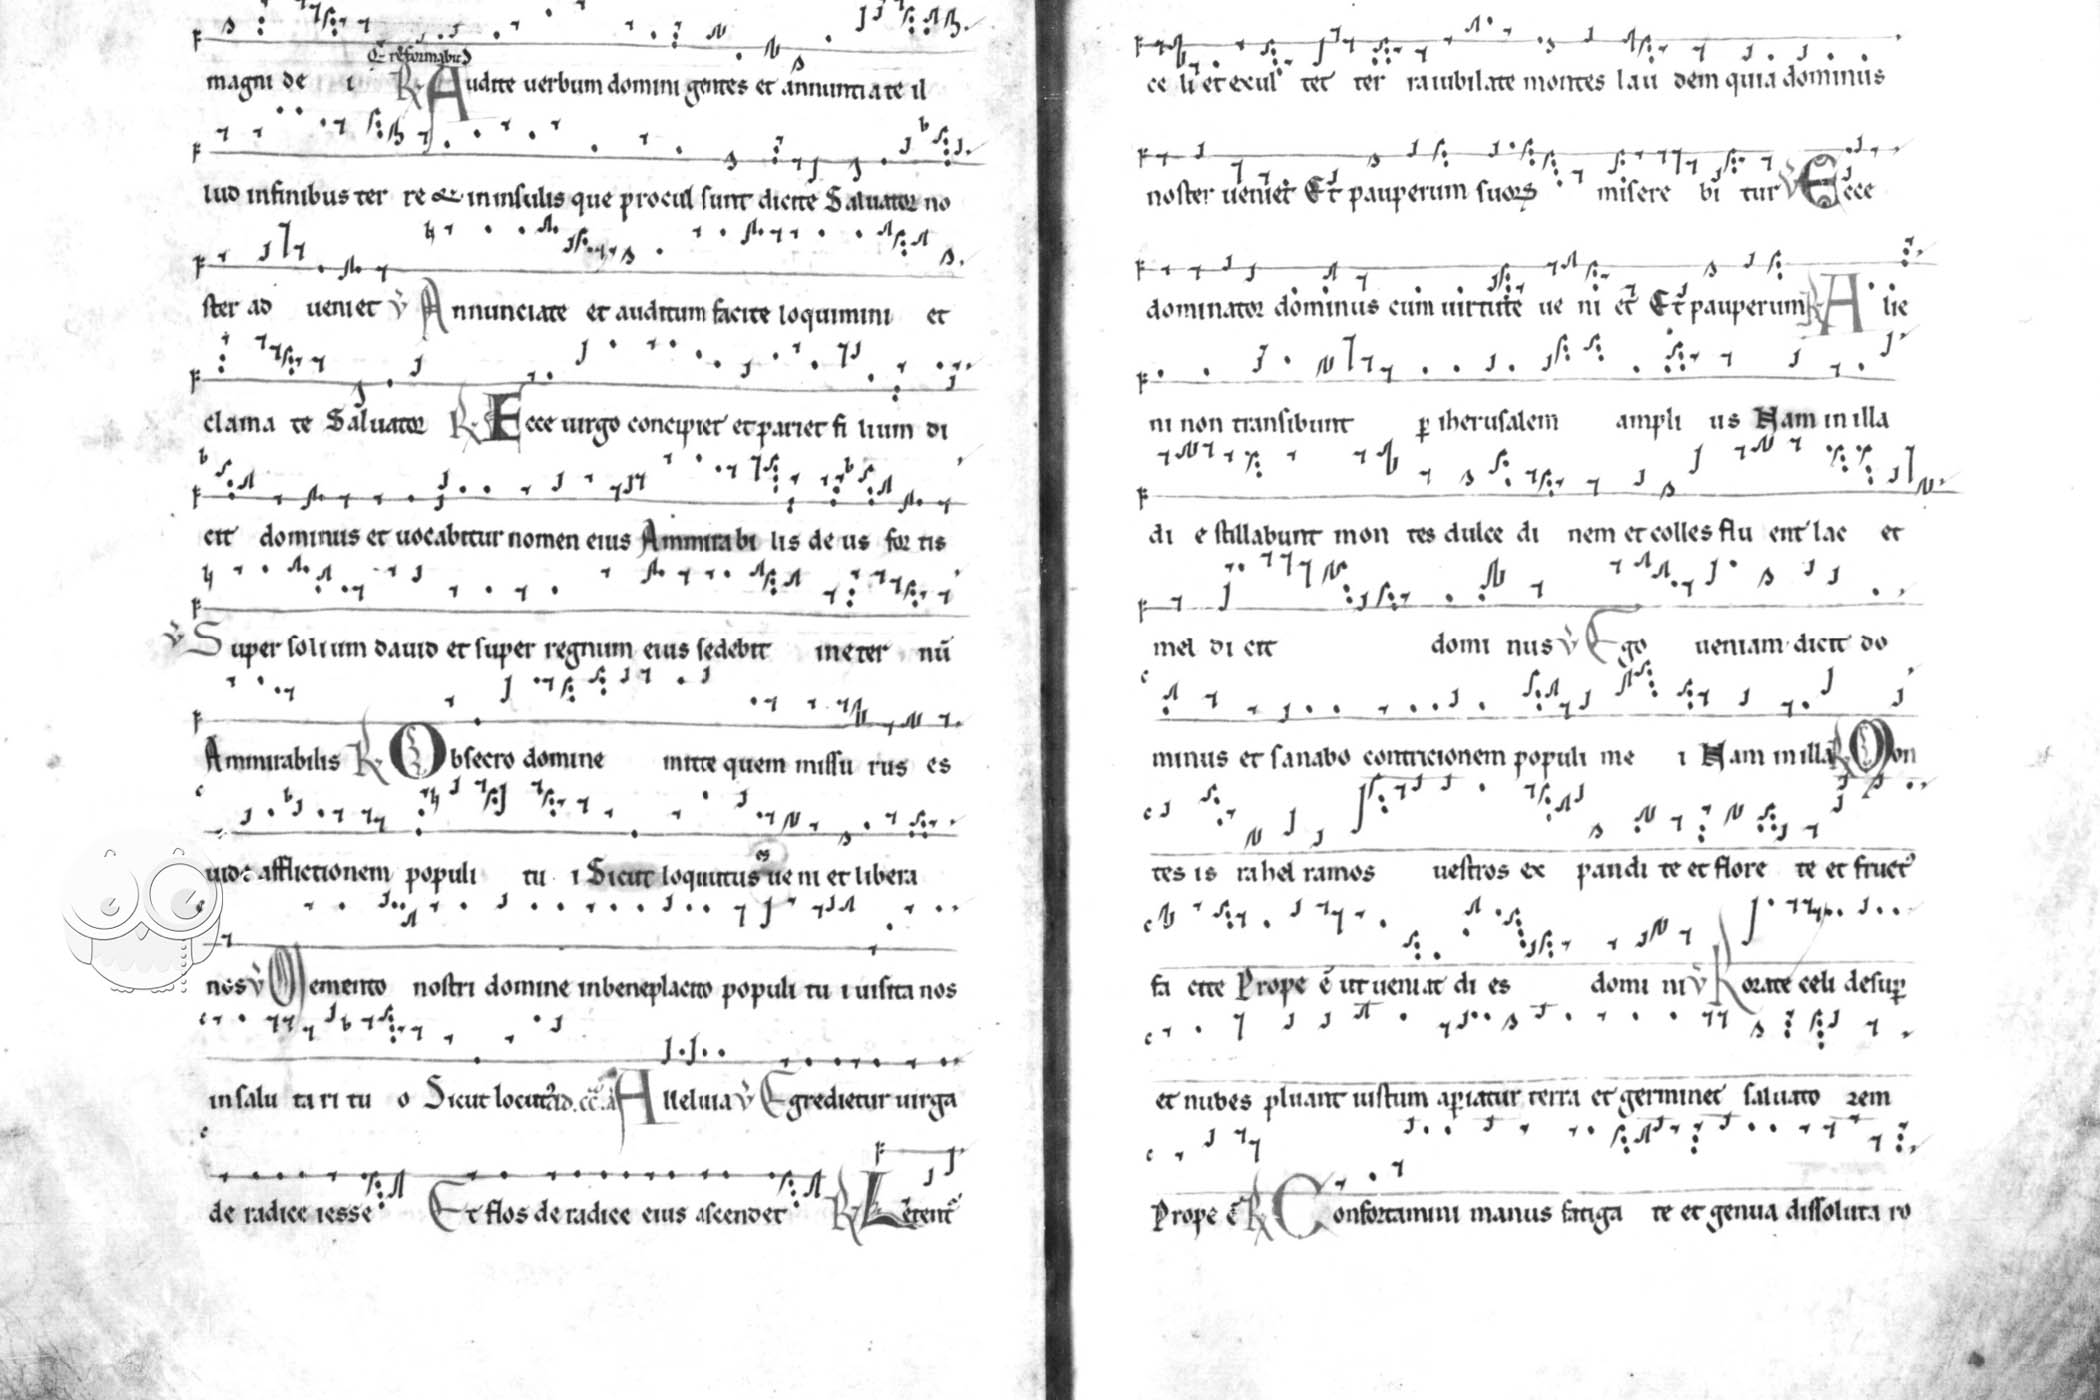 et reformabit
magni de i R Audite uerbum domini gentes et annunciate il
lud in finibus ter re et in insulis que procul sunt dicite Saluator no
ster ad ueniet V Annunciate et auditum facite loquimini et
clama te Saluator R Ecce uirgo concipiet et pariet fi lium di
cit dominus et uocabitur nomen eius Ammirabi lis de us for tis
V Super solium dauid et super regnum eius sedebit in eter nū
Ammirabilis R Obsecro domine mitte quem missu rus es
uide afflictionem populi tu i Sicut loquutus es ue ni et libera
nos V Memento nostri domine in beneplacito populi tu i uisita nos
in salu ta ri tu o Sicut locut Alleluia V Egredietur uirga
de radice iesse Et flos de radice eius ascendet R Letent
ce li et exul tet ter ra iubilate montes lau dem quia dominus
noster ueniet Et pauperum suoꝝ misere bi tur V Ecce
dominator dominus cum uirtute ue ni et Et pauperum R A lie
ni non transibunt ꝑ iherusalem ampli us Nam in illa
di e stillabunt mon tes dulce di nem et colles flu ent lac et
mel di cit domi nus V Ego ueniam dicit do
minus et sanabo contricionem populi me i Nam in illa R Mon
tes is rahel ramos uestros ex pandi te et flore te et fruct
fa cite Prope ē ut ueniat di es domi ni V Rorate celi desuꝑ
et nubes pluant iustum aꝑiatur terra et germinet saluato rem
Prope ē R Confortamini manus fatiga te et genua dissoluta ro